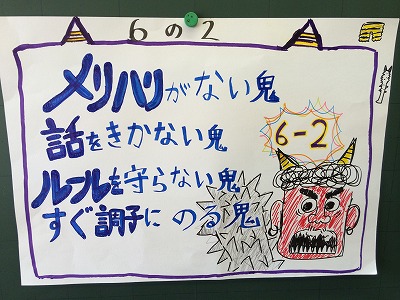 6の2
メリハリがない鬼
話をきかない鬼
6-2
ルールを守らない鬼
すぐ調子にのる鬼